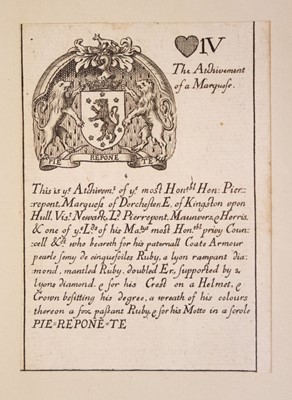 IV
The Atchivement
of a Marquese.
PIE REPONE TE
This is yᵉ Atchivemᵗ of yᵉ most Honᵇˡ Hon: Pier-
repont, Marquess of Dorchester, E, of Kingston upon
Hull, Visᵗ Newark, Lᵈ Pierrepont, Maunvers, & Herris,
& one of yᵉ Lᵈˢ of his Maᵗⁱᵉˢ most Honᵇˡᵉ privy Coun-
cell &ᶜᵃ who beareth for his paternall Coate Armour
pearle semy de cinquefoiles Ruby, a lyon rampant dia-
mond, mantled Ruby, doubled Er, supported by 2
lyons diamond, & for his Crest on a Helmet, &
Crown befitting his degree, a wreath of his colours
thereon a fox passant Ruby, & for his Motto in a scrole
PIE=REPONE=TE